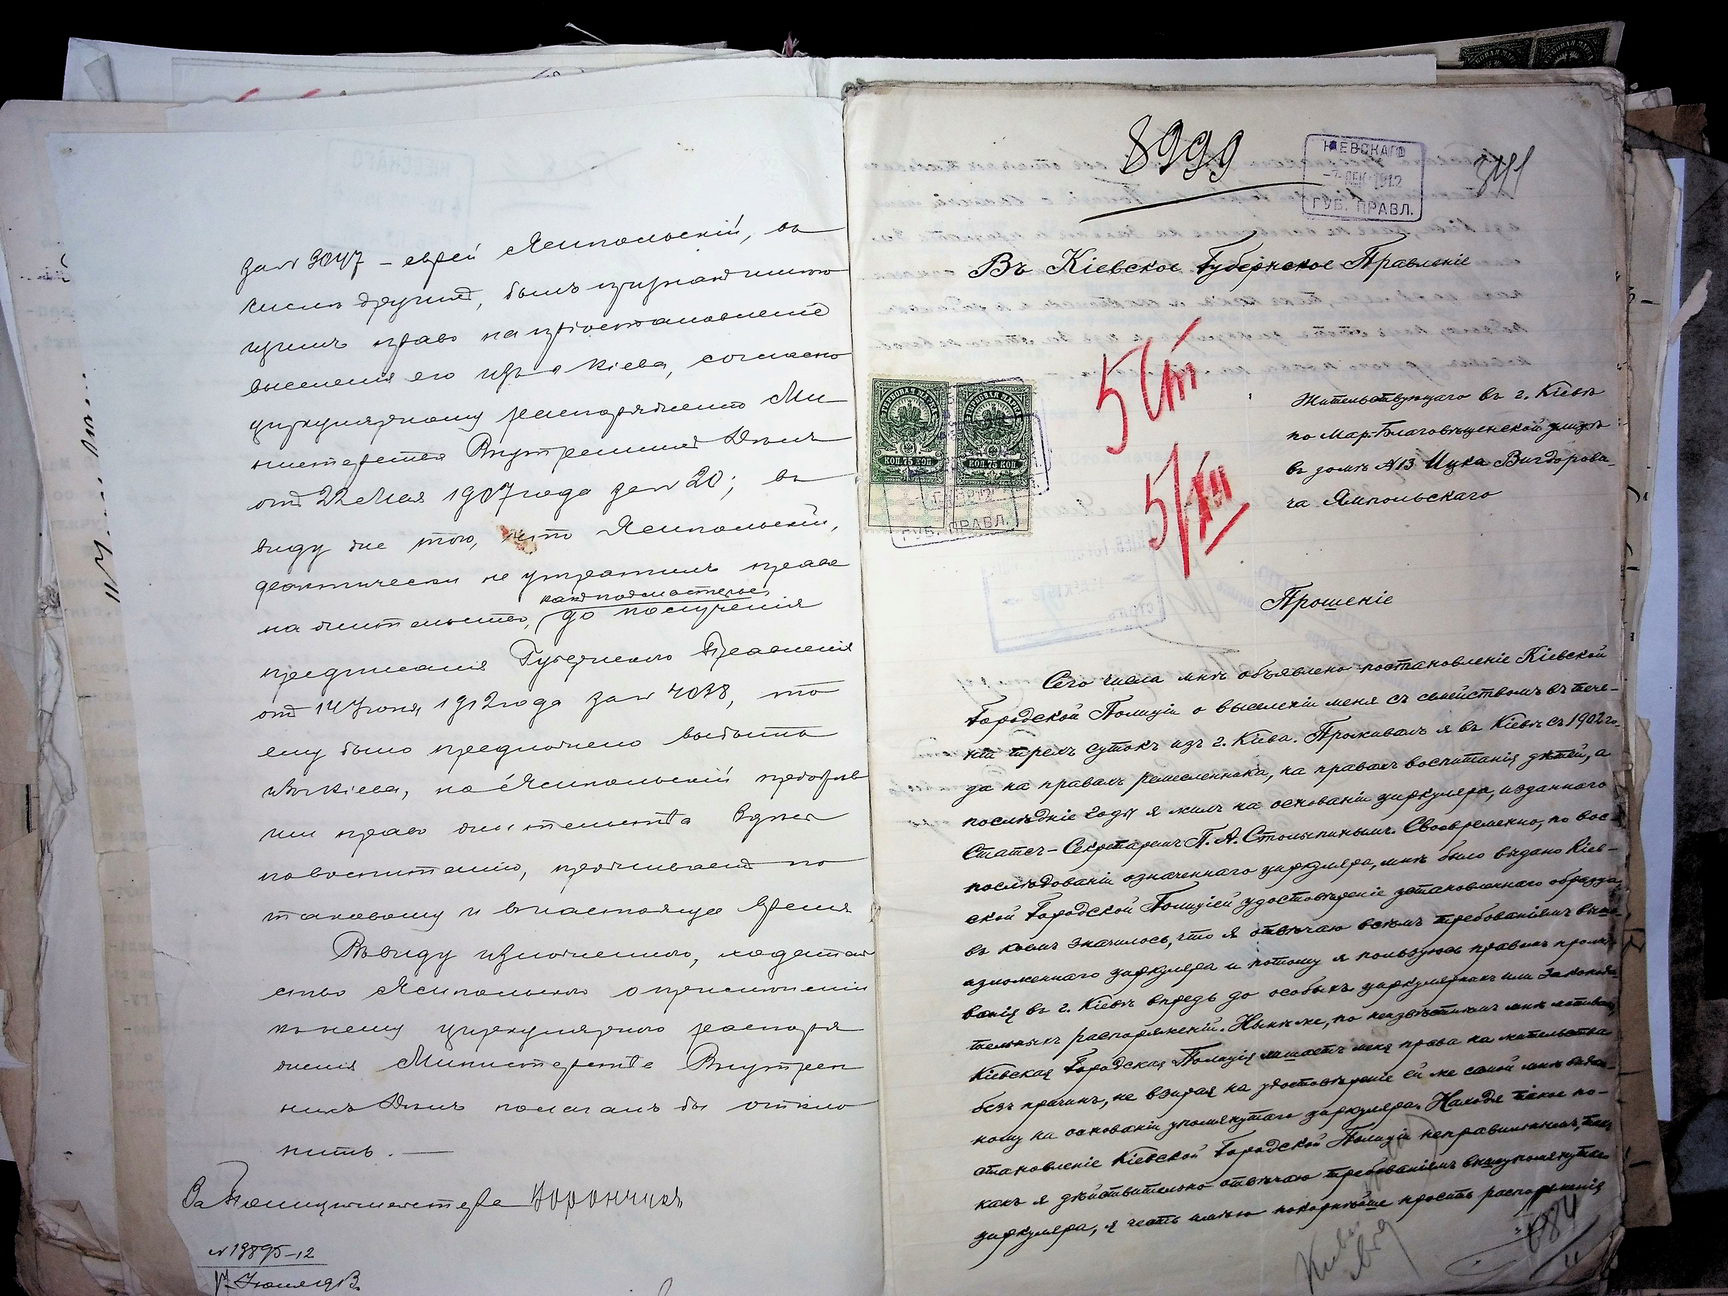 за № 3047 – еврей Ямпольскій, въ
числѣ другихъ, былъ признанъ имѣю
щимъ право на пріостановленіе
выселенія его изъ г. Кіева, согласно
циркулярному распоряженію Ми
нистерства Внутреннихъ Дѣлъ
отъ 22 Мая 1907 года за № 20; въ
виду же того, что Ямпольскій,
фактически не утратилъ права
на жительство, до полученія
предписанія Губернскаго Правленія
отъ 14 Іюня 1912 года за № 4038, то
ему было предложено выбыть
изъ Кіева, но Ямпольскій
право жительства
по воспитанію, проживаетъ по
таковому и въ настоящее время
Въ виду изложеннаго, ходатай
ство Ямпольскаго о примѣненіи
къ нему циркулярнаго распоря
женія Министерства Внутрен
нихъ Дѣлъ полагалъ бы откло
нить. —
За Полицмейстера
№ 19895–12
8999
КІЕВСКАГО
–7 ДЕК 1912
ГУБ. ПРАВЛ.
341
Въ Кіевское Губернское Правленіе
5 Ст
5/XII
КОП. 75 КОП.
КОП. 75 КОП.
ГУБ. ПРАВЛ.
Жительствующаго въ г. Кіевѣ
по Мар. Благовѣщенской улицѣ
въ домѣ № 13 Ицка Вигдорова-
ча Ямпольскаго
Прошеніе
Сего числа мнѣ объявлено постановленіе Кіевской
Городской Полиціи о выселеніи меня съ семействомъ въ тече-
ніи трехъ сутокъ изъ г. Кіева. Проживалъ я въ Кіевѣ съ 1902 го-
да на правахъ ремесленника, на правахъ воспитанія дѣтей, а
послѣдніе годы я жилъ на основаніи циркуляра, изданнаго
Статсъ-Секретаремъ П. А. Столыпинымъ. Своевременно, по вос-
послѣдованіи означеннаго циркуляра, мнѣ было выдано Кіев-
ской Городской Полиціей удостовѣреніе установленнаго образца,
въ коемъ значилось, что я отвѣчаю всѣмъ требованіямъ выше-
изложеннаго циркуляра и потому я пользуюсь правомъ прожи-
ванія въ г. Кіевѣ впредь до особыхъ циркулярныхъ или законода-
тельныхъ распоряженій. Нынѣ же, по неизвѣстнымъ мнѣ мотивамъ,
Кіевская Городская Полиція лишаетъ меня права на жительство
безъ причинъ, не взирая на удостовѣреніе ею же самой мнѣ выдан-
ному на основаніи упомянутаго циркуляра. Находя такое по-
становленіе Кіевской Городской Полиціи неправильнымъ, такъ
какъ я дѣйствительно отвѣчаю требованіямъ вышеупомянутаго
циркуляра, я честь имѣю покорнѣйше просить распоряженія